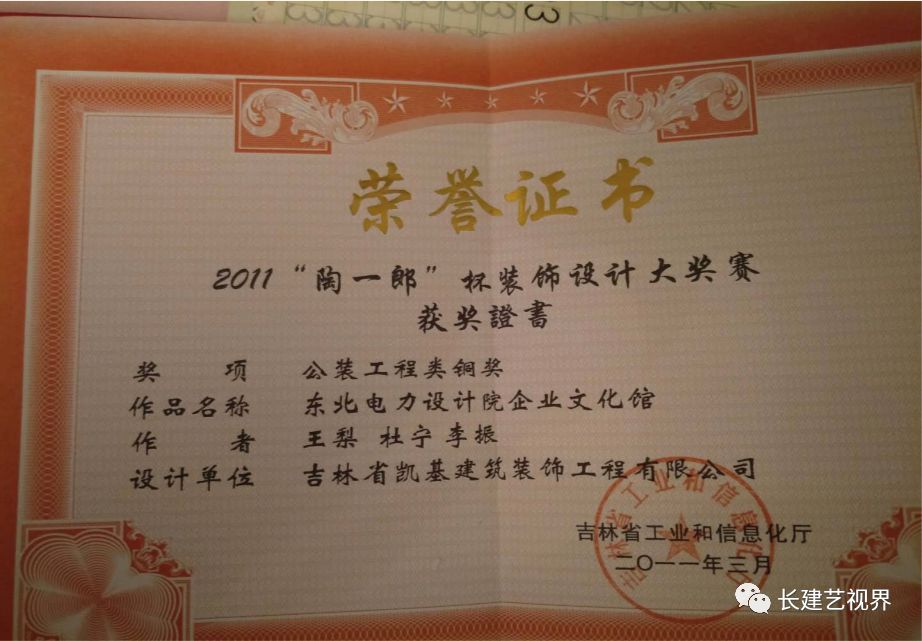 3
荣誉证书
2011“陶一郎”杯装饰设计大奖赛
获奖證書
奖 项 公装工程类铜奖
作品名称 东北电力设计院企业文化馆
作 者 王梨 杜宁 李振
设计单位 吉林省凯基建筑装饰工程有限公司
吉林省工业和信息化厅
吉林省工业和信息化厅
二〇一一年三月
长建艺视界